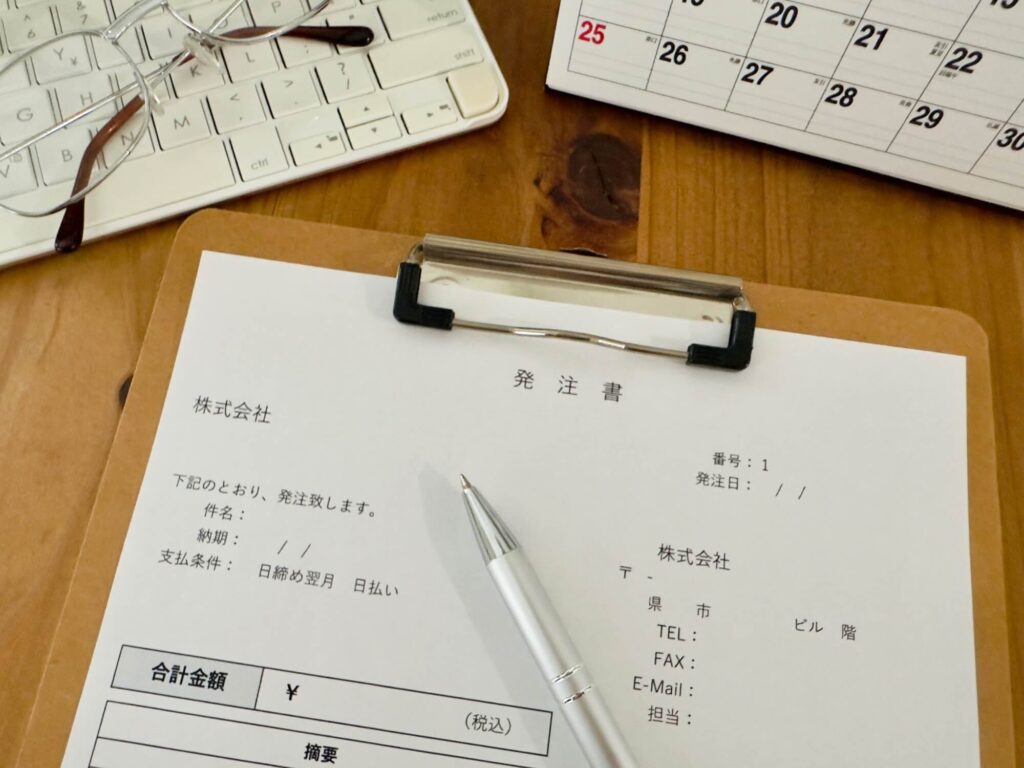 return
shift
ctrl
Y ¥
P
G
H
K
L
V
B
N
M
20
21
22
25
26
27
28
29
30
発注書
株式会社
番号：1
発注日： / /
下記のとおり、発注致します。
件名：
納期： / /
支払条件： 日締め翌月 日払い
株式会社
〒 -
県 市 ビル 階
TEL：
FAX：
E-Mail：
担当：
合計金額 ¥ （税込）
摘要